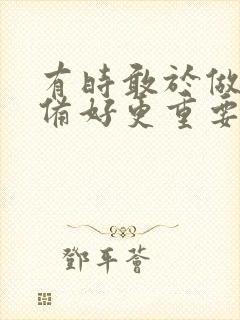 有時敢於做
備好更重要
鄧平薈